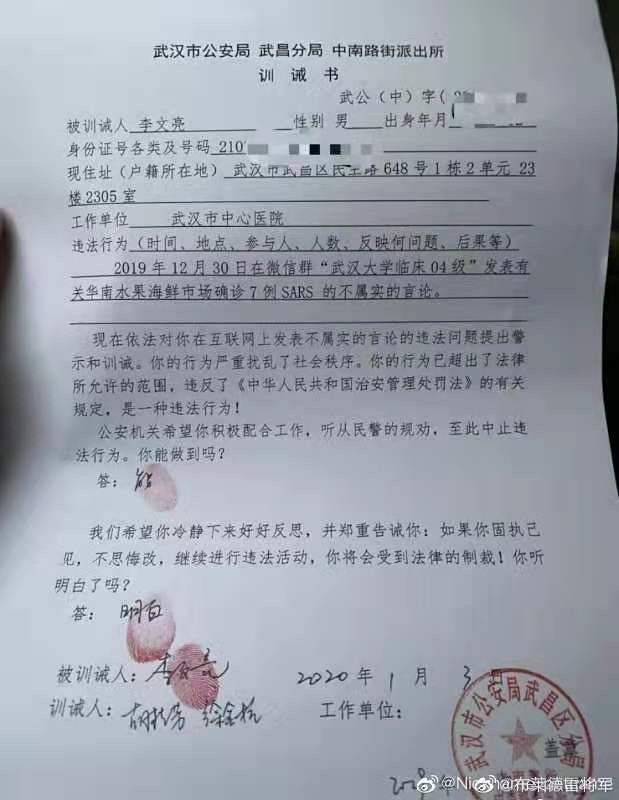 武汉市公安局 武昌分局 中南路街派出所
训 诫 书
武公（中）字（
被训诫人 李文亮 性别 男 出身年月
身份证号各类及号码 210
现住址（户籍所在地） 武汉市武昌区民主路 648 号 1 栋 2 单元 23
楼 2305 室
工作单位 武汉市中心医院
违法行为（时间、地点、参与人、人数、反映何问题、后果等）
2019 年 12 月 30 日在微信群“武汉大学临床 04 级”发表有
关华南水果海鲜市场确诊 7 例 SARS 的不属实的言论。
现在依法对你在互联网上发表不属实的言论的违法问题提出警
示和训诫。你的行为严重扰乱了社会秩序。你的行为已超出了法律
所允许的范围，违反了《中华人民共和国治安管理处罚法》的有关
规定，是一种违法行为！
公安机关希望你积极配合工作，听从民警的规劝，至此中止违
法行为。你能做到吗？
答： 能
我们希望你冷静下来好好反思，并郑重告诫你：如果你固执己
见，不思悔改，继续进行违法活动，你将会受到法律的制裁！你听
明白了吗？
答： 明白
被训诫人：李文亮 2020 年 1 月 3 日
训诫人： 工作单位：
武汉市公安局武昌区分局
盖章
@布莱德雷将军